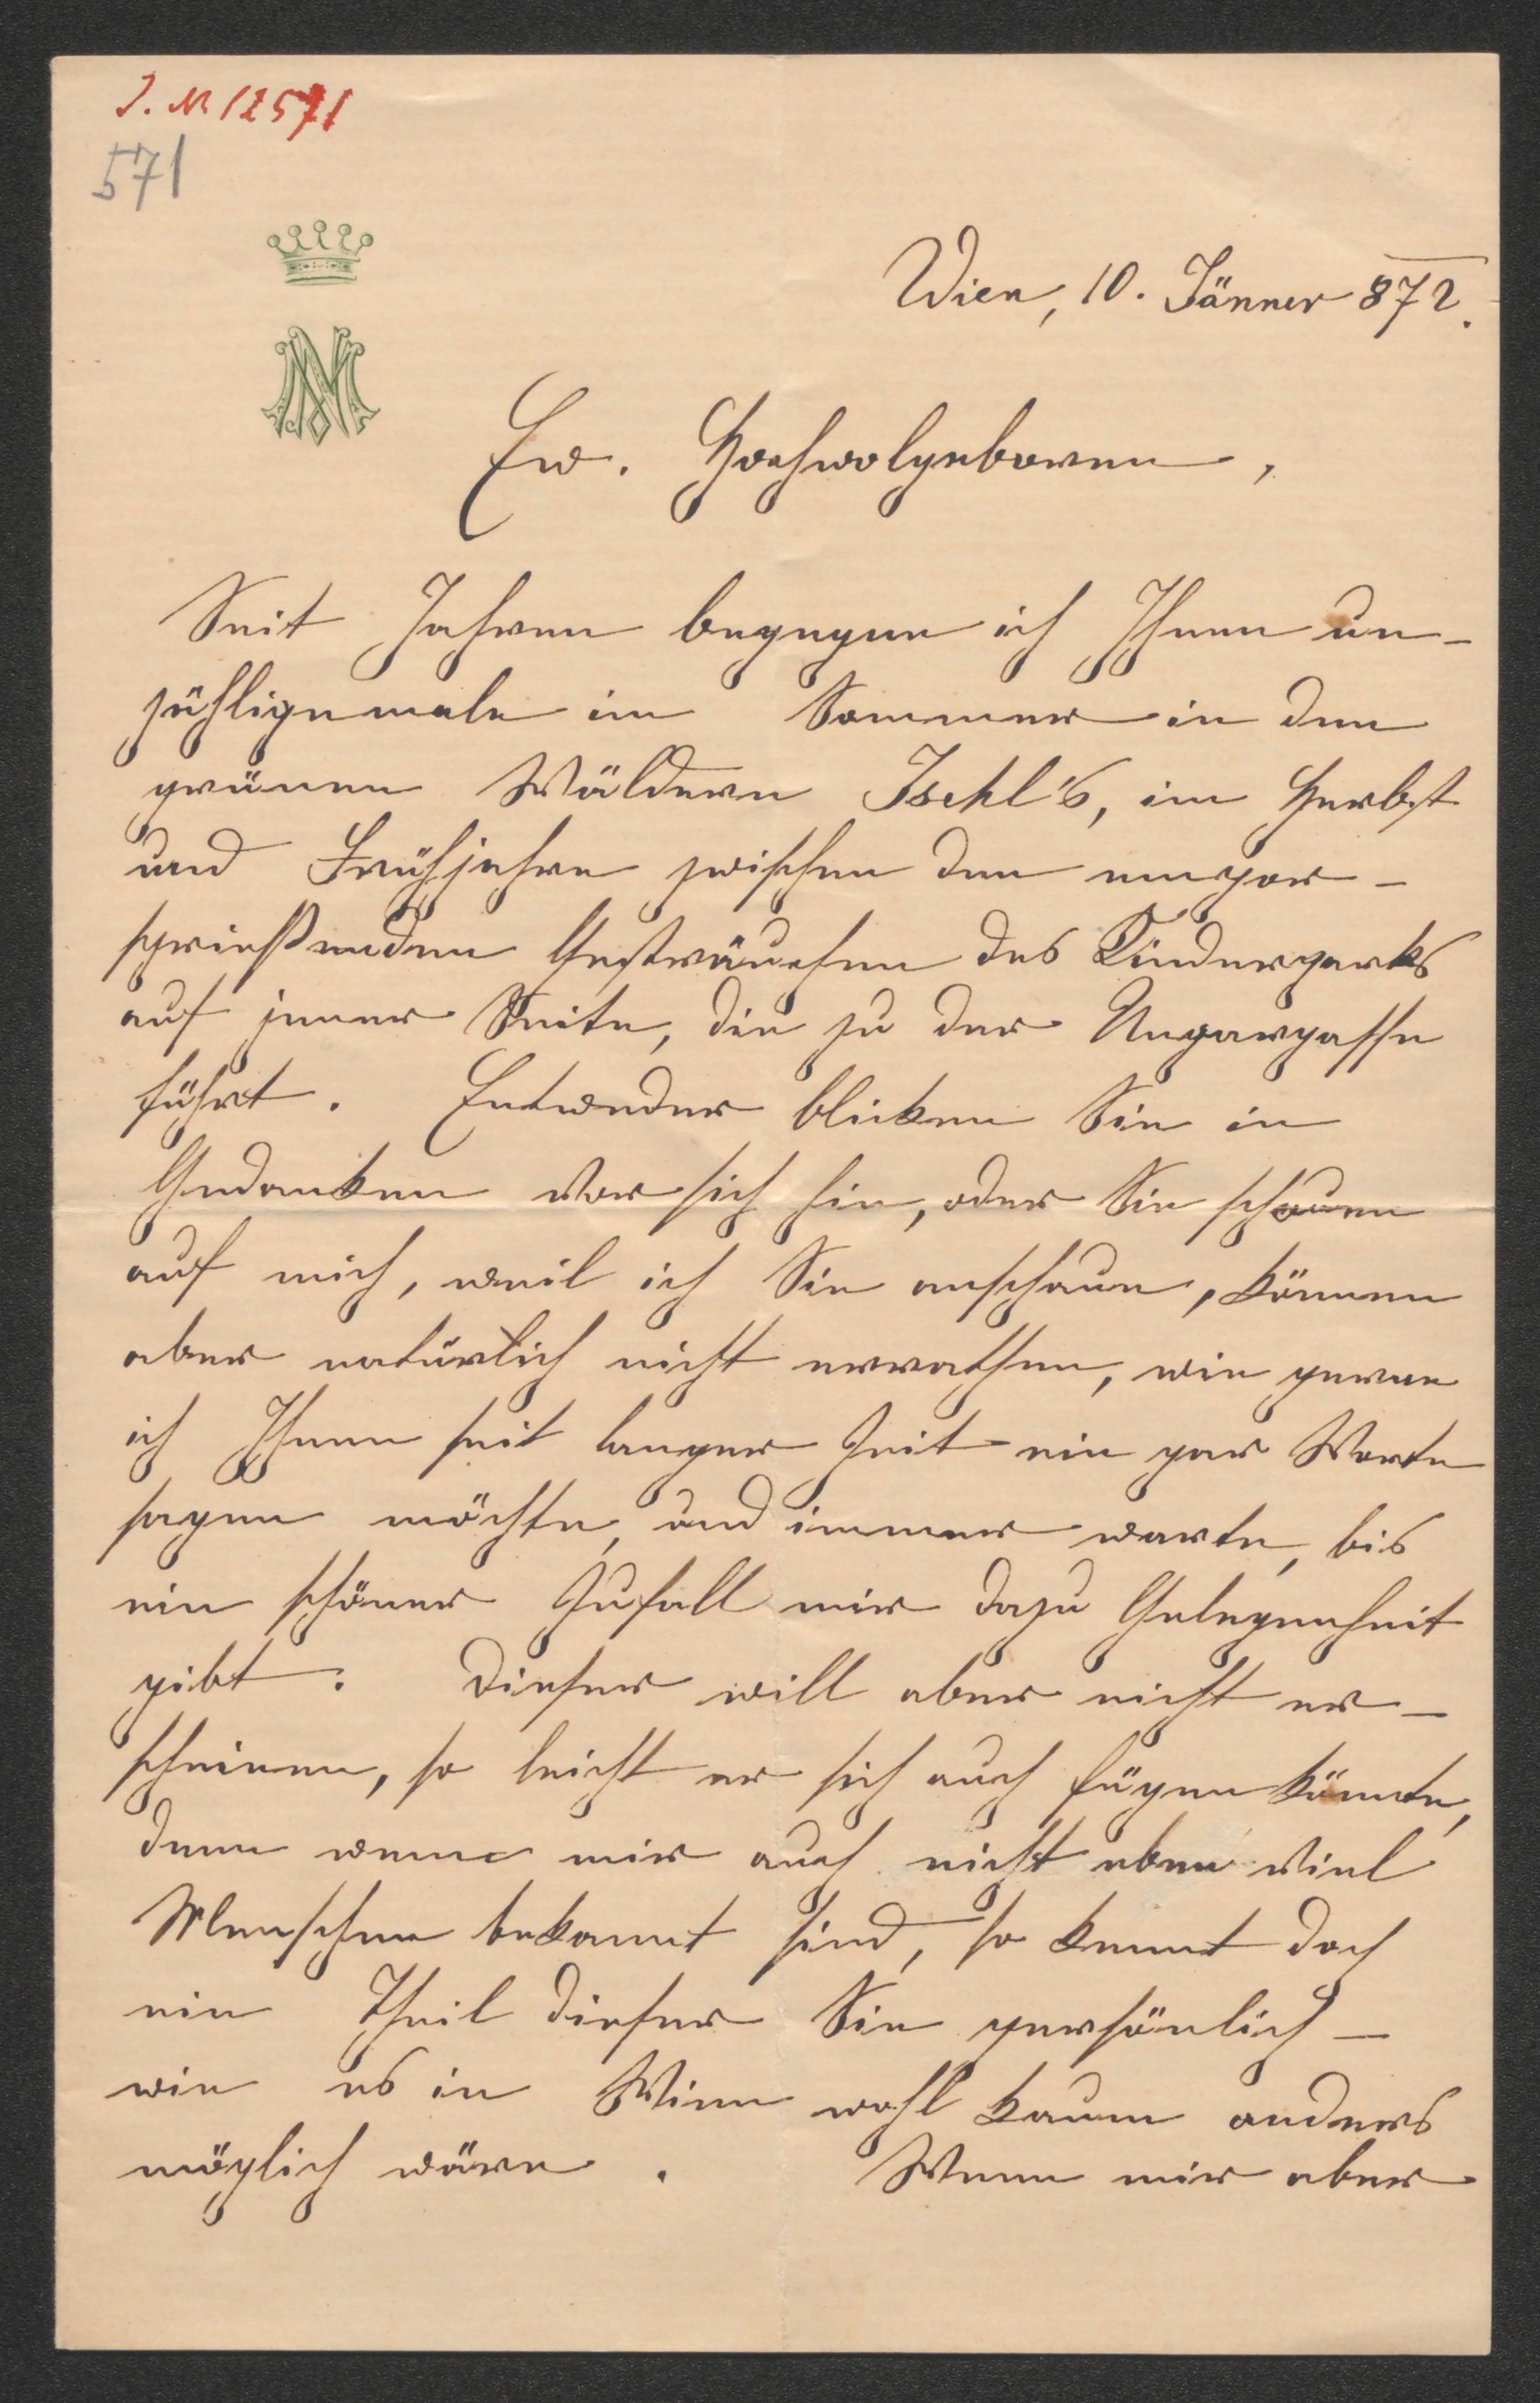 J. N. 12571
571
NA
Wien, 10. Jänner 872.
Ew. Hochwolgeboren,
Seit Jahren begegne ich Ihnen un-
zähligemale im Sommer in den
grünen Wäldern Ischl's, im Herbst
und Frühjahre zwischen den empor-
sprießenden Gesträuchen des Kinderparks
auf jener Seite, die zu der Ungargasse
führt. Entweder blicken Sie in
Gedanken vor sich hin, oder Sie schauen
auf mich, weil ich Sie anschaue, können
aber natürlich nicht errathen, wie gerne
ich Ihnen seit langer Zeit ein par Worte
sagen möchte, und immer warte, bis
ein schöner Zufall mir dazu Gelegenheit
gibt. Dieser will aber nicht er-
scheinen, so leicht er sich auch fügen könnte,
denn wenn mir auch nicht eben viel
Menschen bekannt sind, so kennt doch
ein Theil dieser Sie persönlich –
wie es in Wien wohl kaum anders
möglich wäre. Wenn mir aber